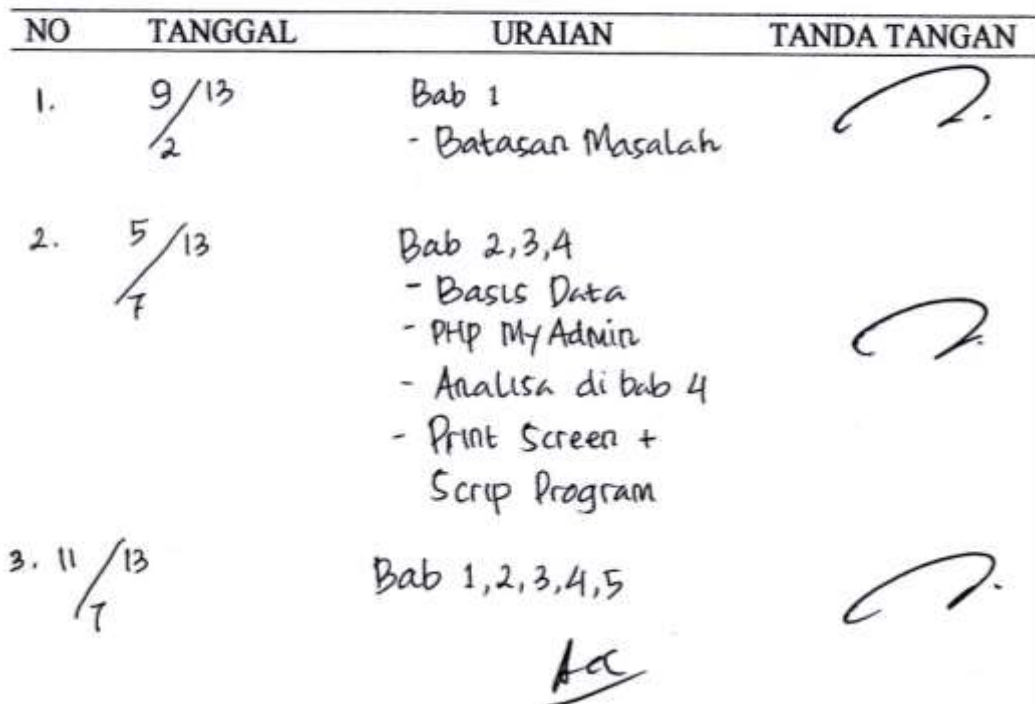 NO TANGGAL URAIAN TANDA TANGAN
1. 9/2 13 Bab 1
- Batasan Masalah
2. 5/7 13 Bab 2,3,4
- Basis Data
- PHP My Admin
- Analisa di bab 4
- Print Screen +
Scrip Program
3. 11/7 13 Bab 1,2,3,4,5
Acc